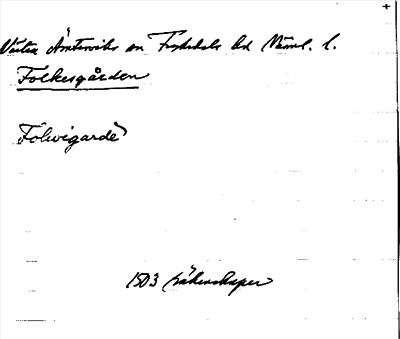 Västra Ämtervik sn Fryksdals hd Värml. l.
Folkesgården
Folwigarde
1503 räkenskaper